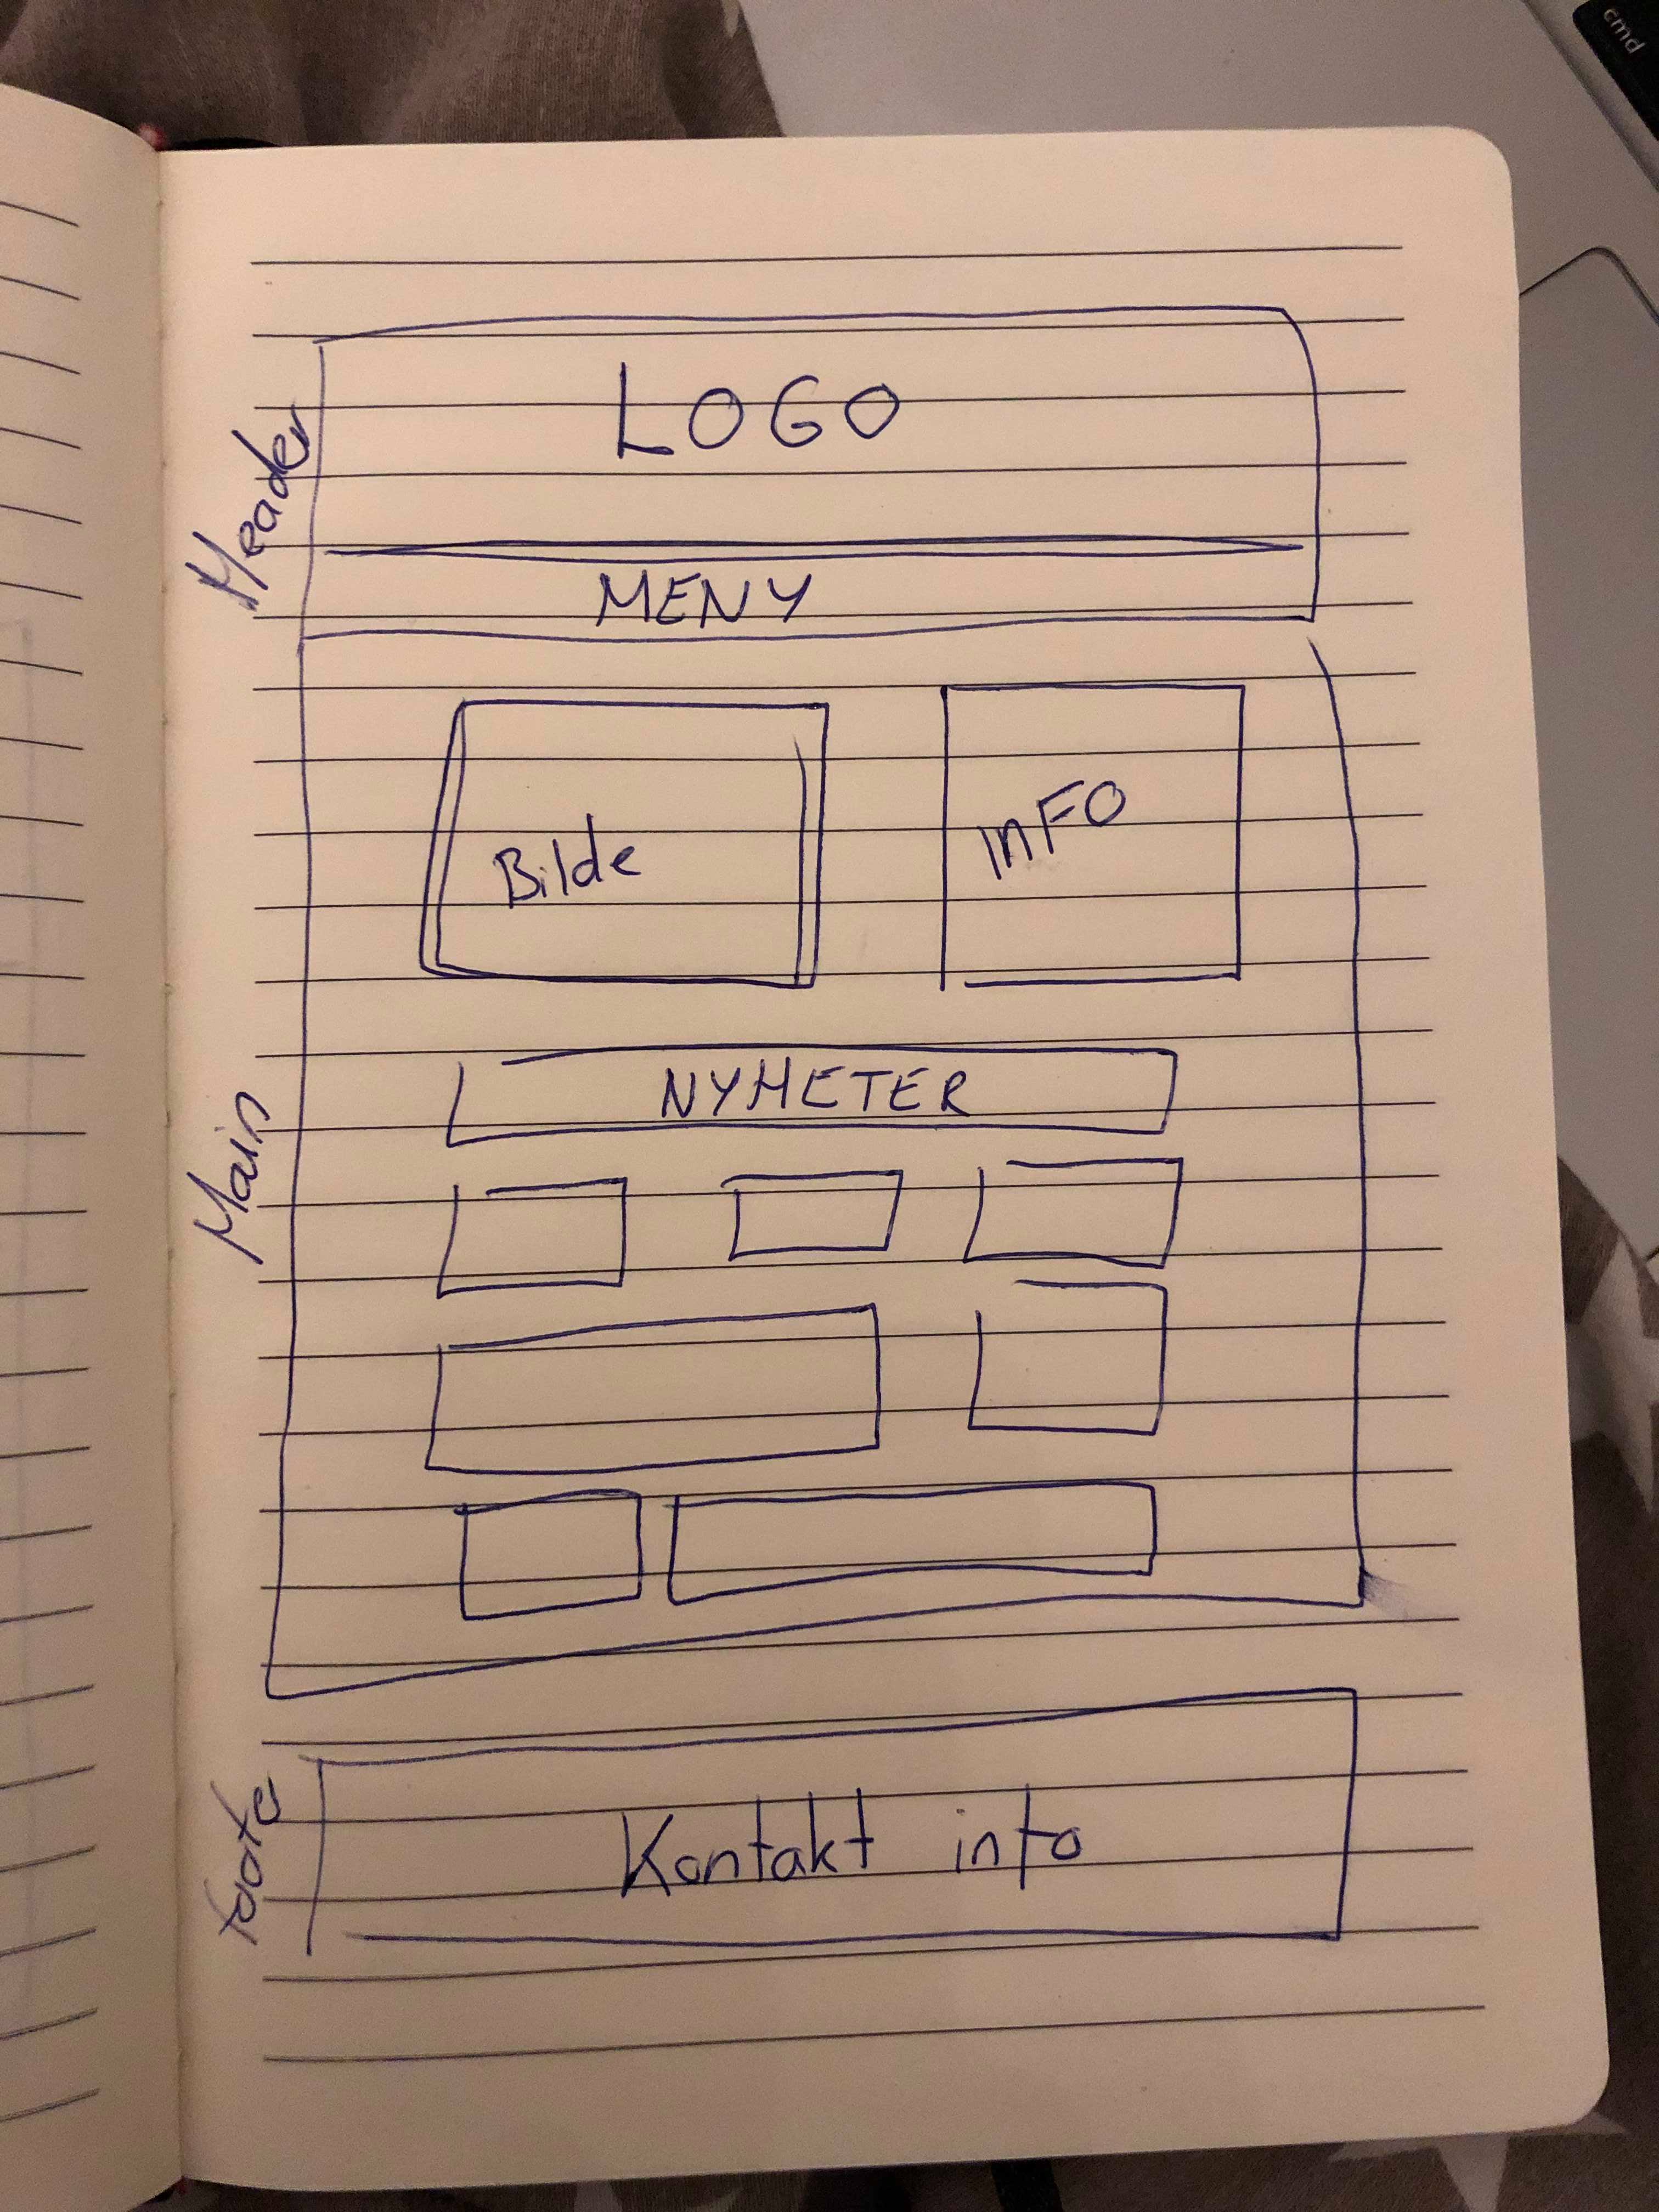 cmd
Header
LOGO
MENY
Bilde
InFO
Main
NYHETER
foote
Kontakt info